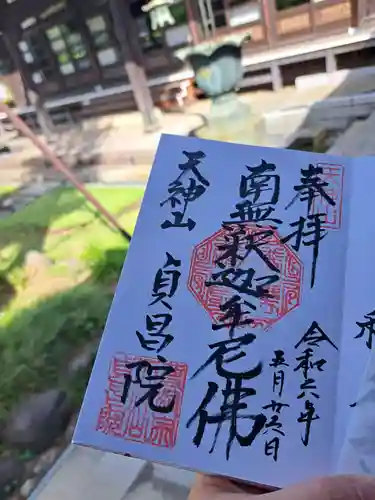 奉拝
令和六年
五月廿六日
南無釈迦牟尼佛
天神山
貞昌院